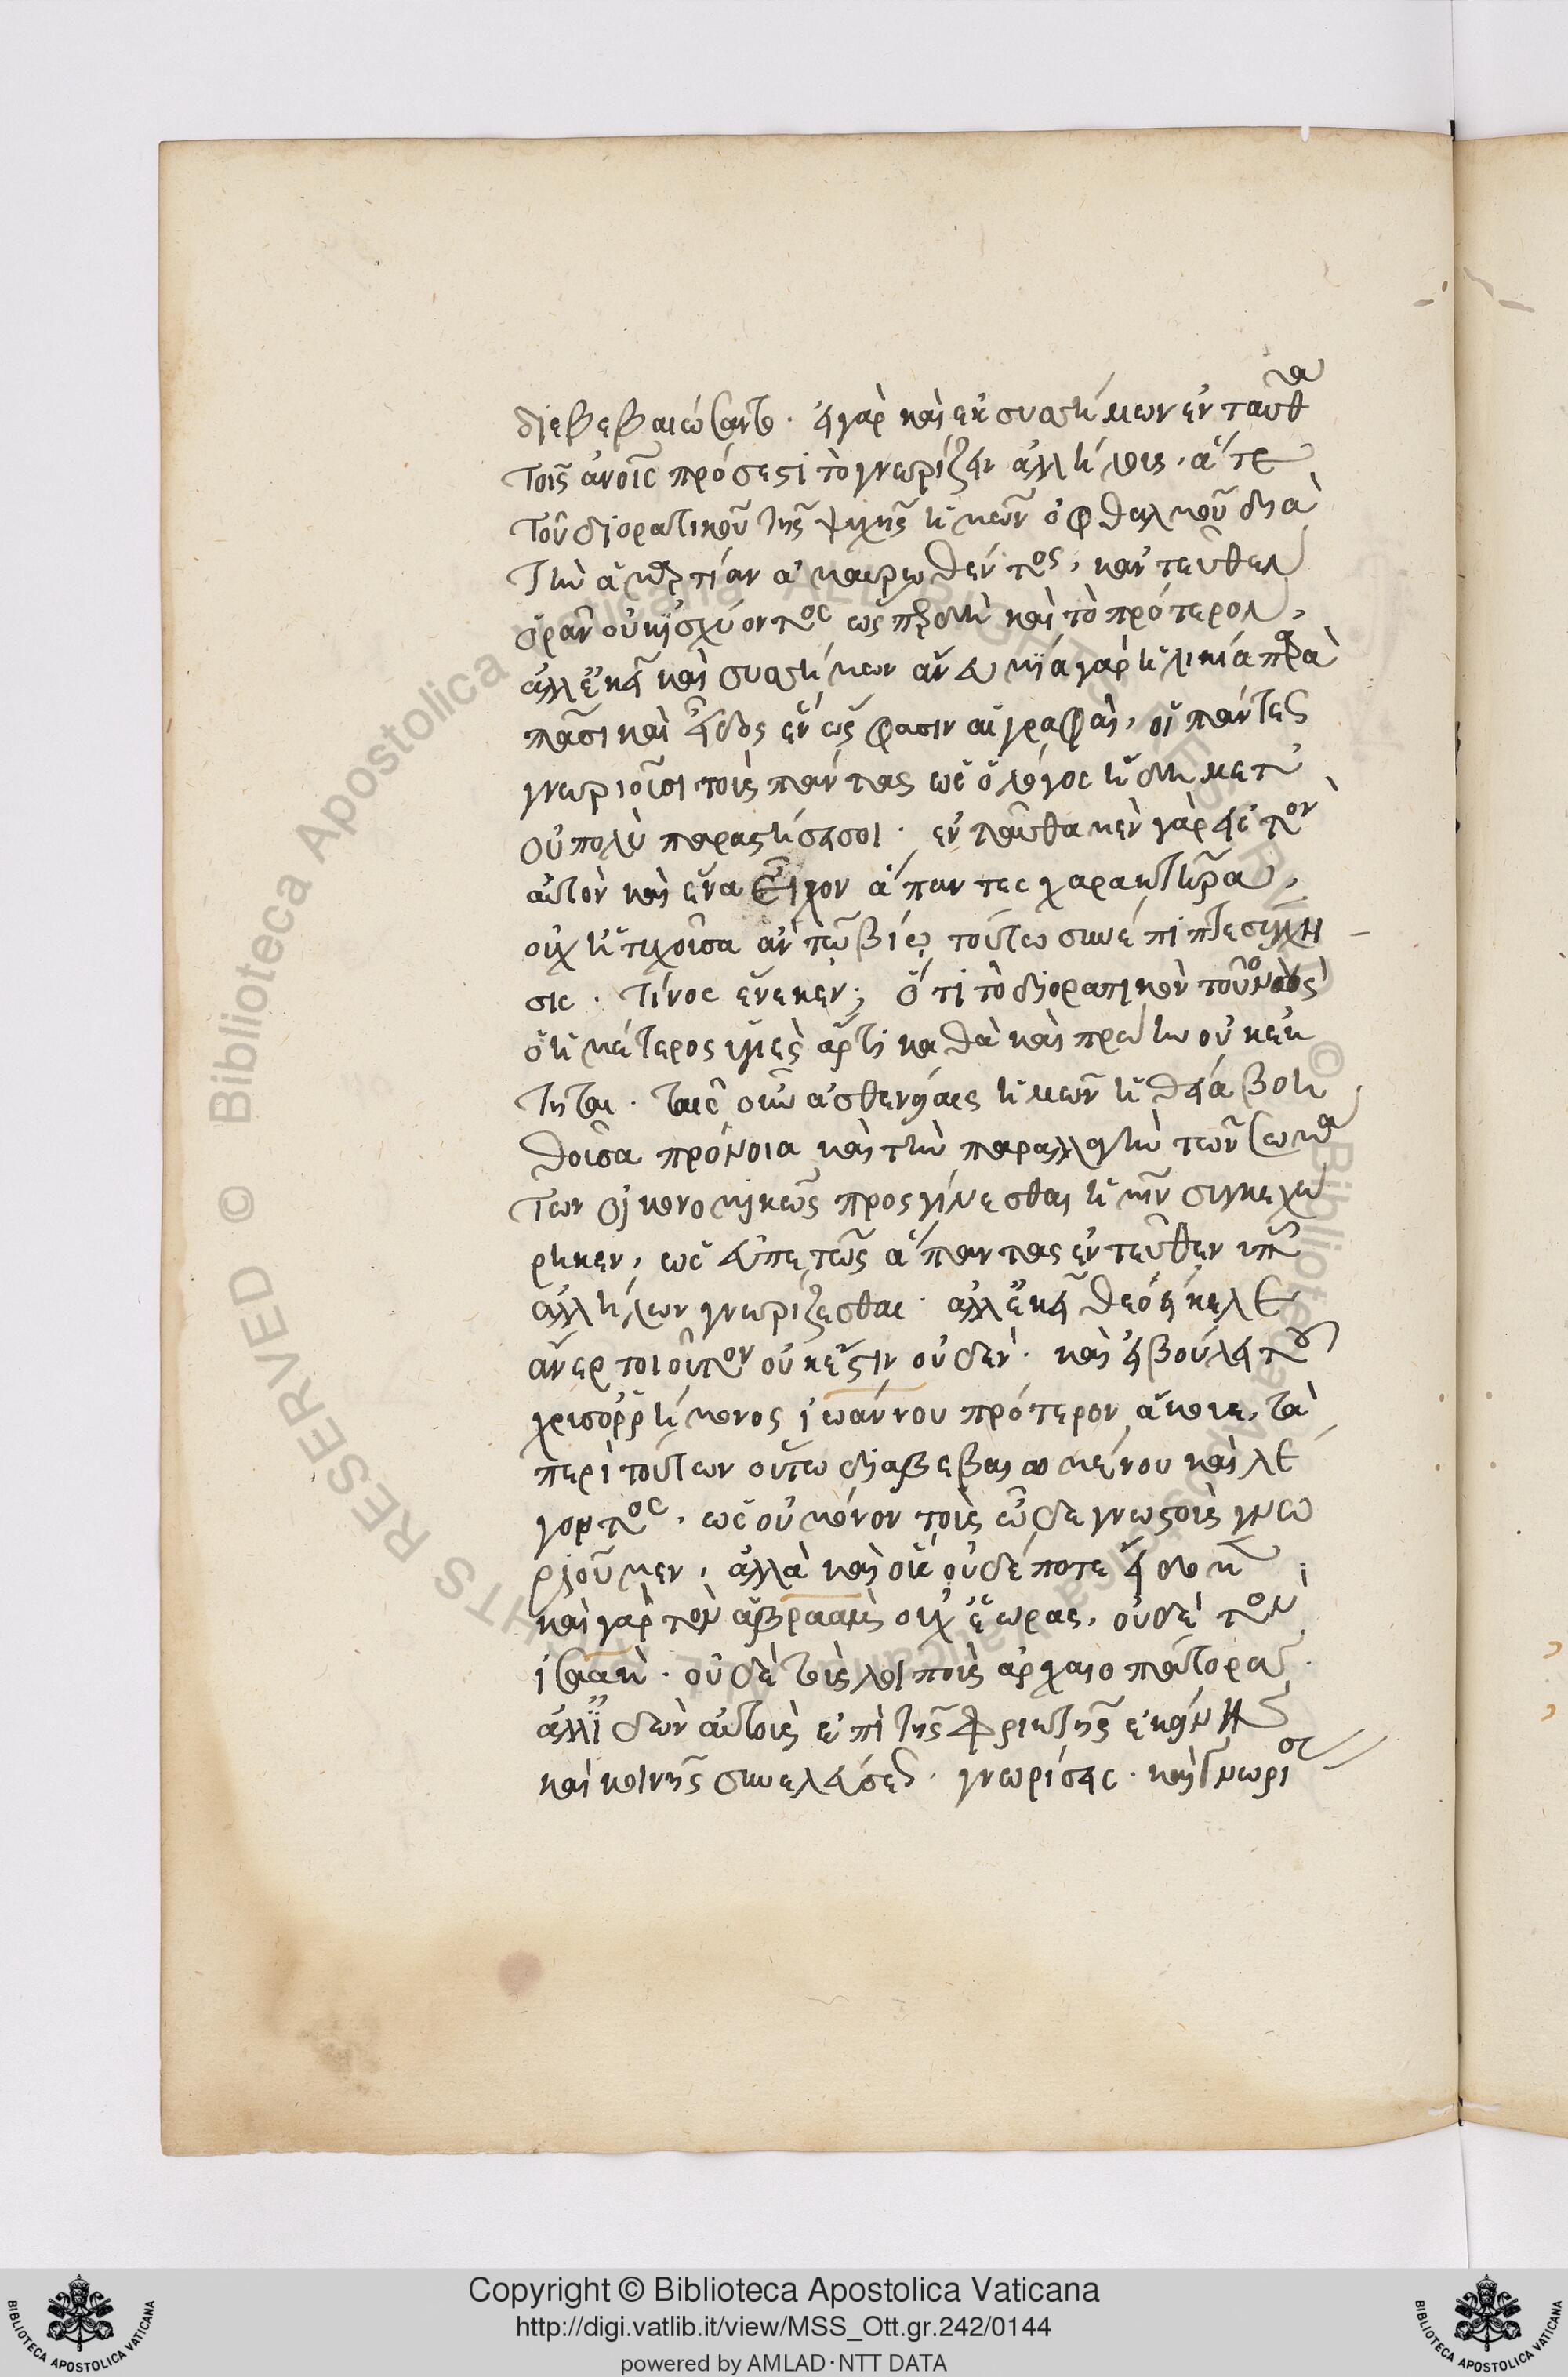 διεβεβαιώσαντο. εἰ γὰρ καὶ ἐκ συσήμων ἐνταῦθα
τοῖς ἀνοις πρόσεστι τὸ γνωρίζειν ἀλλήλους, ἅτε
τοῦ διορατικοῦ τῆς ψυχῆς ἡμῶν ὀφθαλμοῦ διὰ
τὴν ἁμαρτίαν ἀμαυρωθέντος, κἀντεῦθεν
ὁρᾶν οὐκ ἰσχύοντος ὡς
καὶ τὸ πρότερον,
ἀλλ' ἐκεῖ καὶ συσήμων ἄνευ μία γὰρ ἡλικία παρὰ
πᾶσι καὶ εἶδος ἓν ὥς φασιν αἱ γραφαὶ, οἱ πάντες
γνωριοῦσι τοὺς πάντας ὡς ὁ λόγος ἤδη μετ'
οὐ πολὺ παραστήσει σοι. ἐνταῦθα μὲν γὰρ εἰ τὸν
αὐτὸν καὶ ἕνα εἶχον ἅπαντες χαρακτῆρα,
οὐχ ἡ τυχοῦσα ἂν τῷ βίῳ τούτῳ συνέπιπτε σύγχυ
σις. τίνος ἕνεκεν; ὅτι τὸ διορατικὸν τοῦ νοὸς
ὁ ἡμέτερος ὑγιὲς ἄρτι καθὰ καὶ πρώην οὐ κέκ
τηται. ταῖς οὖν ἀσθενείαις ἡμῶν ἡ θεία βοη
θοῦσα πρόνοια καὶ τὴν παραλλαγὴν τῶν σωμά
των οἰκονομικῶς προσγίνεσθαι ἡμῖν συγκεχώ
ρηκεν, ὡς εὐπετῶς ἅπαντας ἐντεῦθεν ὑπ'
ἀλλήλων γνωρίζεσθαι. ἀλλ' ἐκεῖ θεοείκελε
ἄνερ τοιοῦτον οὐκ ἔστιν οὐδέν. καὶ εἰ βούλει τοῦ
χρυσορρήμονος ἰωάννου πρότερον ἄκουε, τὰ
περὶ τούτων οὕτω διαβεβαιωμένου καὶ λέ
γοντος, ὡς οὐ μόνον τοὺς ὧδε γνωστοὺς γνω
ριοῦμεν, ἀλλὰ καὶ οὓς οὐδέποτε εἴδομεν
καὶ γὰρ τὸν ἀβραὰμ οὐχ ἑώρας, οὐδὲ τὸν
ἰσαὰκ. οὐδὲ τοὺς λοιποὺς ἀρχαιοπάτορας.
ἀλλ' ἰδὼν αὐτοὺς ἐπὶ τῆς φρικτῆς ἐκείνης
καὶ κοινῆς συνελεύσεως. γνωρίσεις. καὶ γνωρι